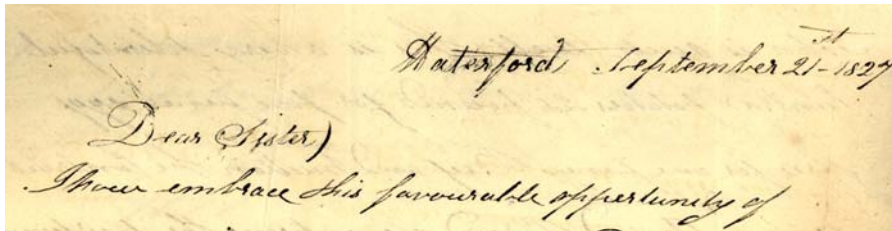 Waterford September 21st 1827
Dear Sister)
I now embrace this favourable oppertunity of